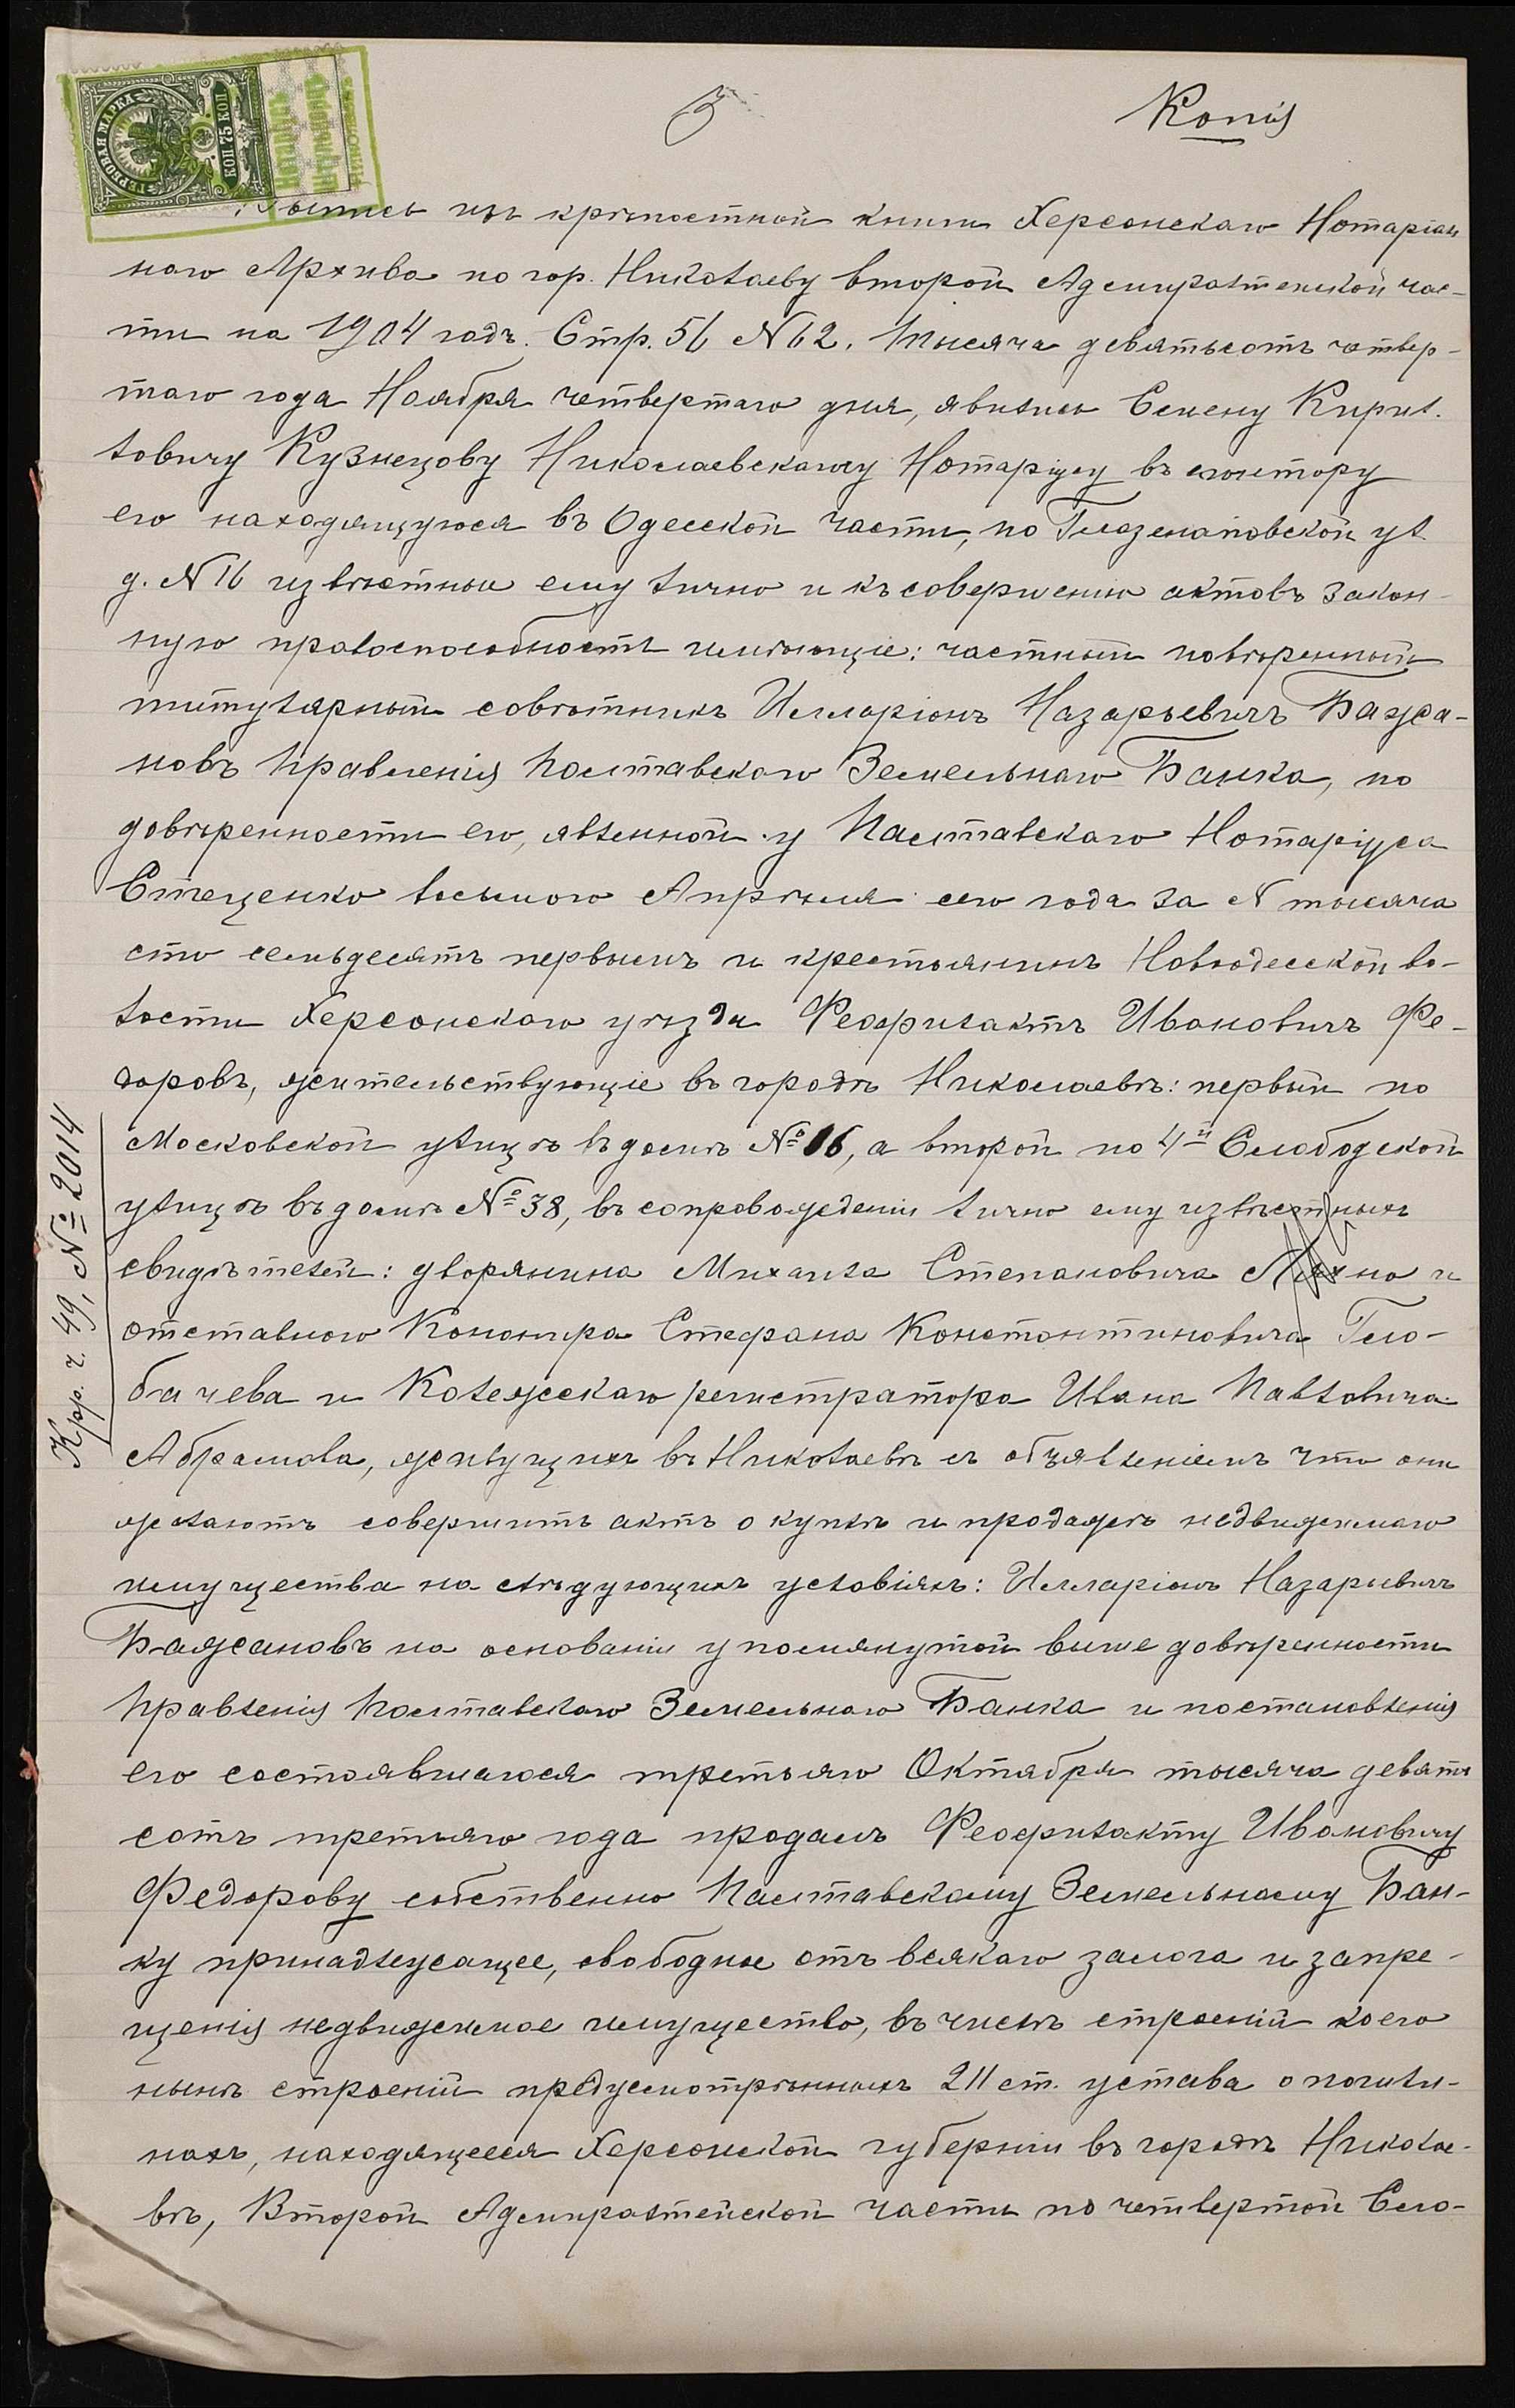 3
Копія
ГЕРБОВАЯ МАРКА
75 КОП
Выпись изъ крѣпостной книги Херсонскаго Нотаріаль
наго Архива по гор. Николаеву второй Адмиралтейской час-
ти на 1904 годъ. Стр. 56 N 62. Тысяча девятьсотъ четвер-
таго года Ноября четвертаго дня, явились Семену Кирил-
ловичу Кузнецову Николаевскому Нотаріусу въ контору
его находящуюся въ Одесской части, по Глазенаповской ул.
д. N 16 извѣстные ему лично и къ совершенію актовъ закон-
ную правоспособность имѣющіе: частный повѣренный
титулярный совѣтникъ Илларіонъ Назарьевичъ Бажа-
новъ Правленія Полтавскаго Земельнаго Банка, по
довѣренности его, явленной у Полтавскаго Нотаріуса
Стеценко восьмого Апрѣля сего года за N тысяча
сто семьдесятъ первымъ и крестьянинъ Новоодесской во-
лости Херсонскаго уѣзда Феофилактъ Ивановичъ Фе-
доровъ, жительствующіе въ городѣ Николаевѣ: первый по
Московской улицѣ въ домѣ № 16, а второй по 4й Слободской
улицѣ въ домѣ № 38, въ сопровожденіи лично ему извѣстныхъ
свидѣтелей: дворянина Михаила Степановича Ляхно и
отставного Канонира Стефана Константиновича Гло-
бачева и Колежскаго регистратора Ивана Павловича
Абрамова, живущихъ въ Николаевѣ съ объявленіемъ что они
желаютъ совершить актъ о куплѣ и продажѣ недвижимаго
имущества на слѣдующихъ условіяхъ: Илларіонъ Назарьевичъ
Бажановъ на основаніи упомянутой выше довѣренности
Правленія Полтавскаго Земельнаго Банка и постановленія
его состоявшагося третьяго Октября тысяча девять
сотъ третьяго года продалъ Феофилакту Ивановичу
Федорову собственно Полтавскому Земельному Бан-
ку принадлежащее, свободное отъ всякаго залога и запре-
щенія недвижимое имущество, въ числѣ строеній коего
нынѣ строеній предусмотрѣнныхъ 211 ст. устава о пошли-
нахъ, находящееся Херсонской губерніи въ городѣ Никола-
евѣ, Второй Адмиралтейской части по четвертой Сло-
Кр. ч. 49, № 2014